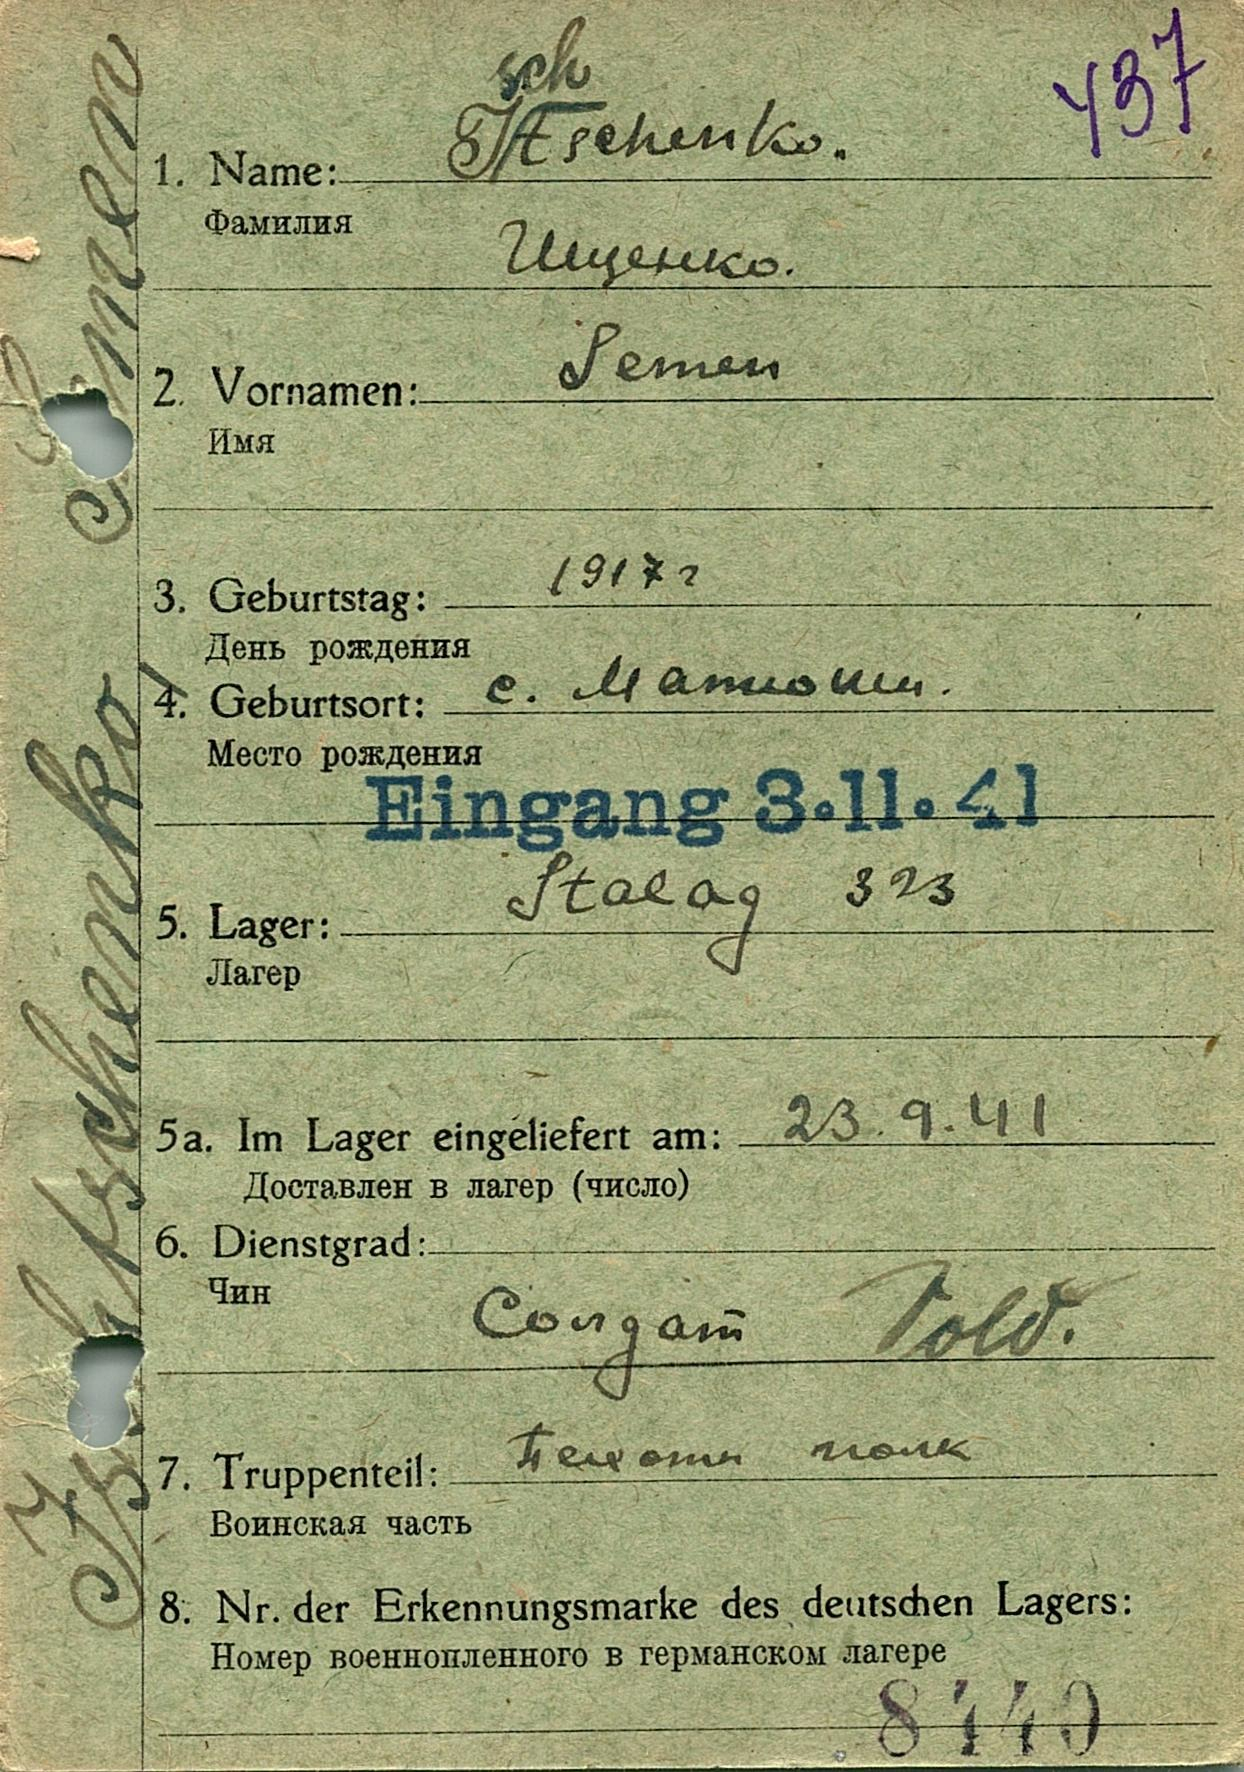 437
sch
1. Name: Itschenko.
Фамилия
Ищенко.
2. Vornamen: Semen
Имя
3. Geburtstag: 1917 г
День рождения
4. Geburtsort: с. Матюши.
Место рождения
Eingang 3.11.41
5. Lager: Stalag 323
Лагер
5a. Im Lager eingeliefert am: 23.9.41
Доставлен в лагер (число)
6. Dienstgrad:
Чин
Солдат Sold.
7. Truppenteil: Пехотн полк
Воинская часть
8. Nr. der Erkennungsmarke des deutschen Lagers:
Номер военнопленного в германском лагере
8440
Semen